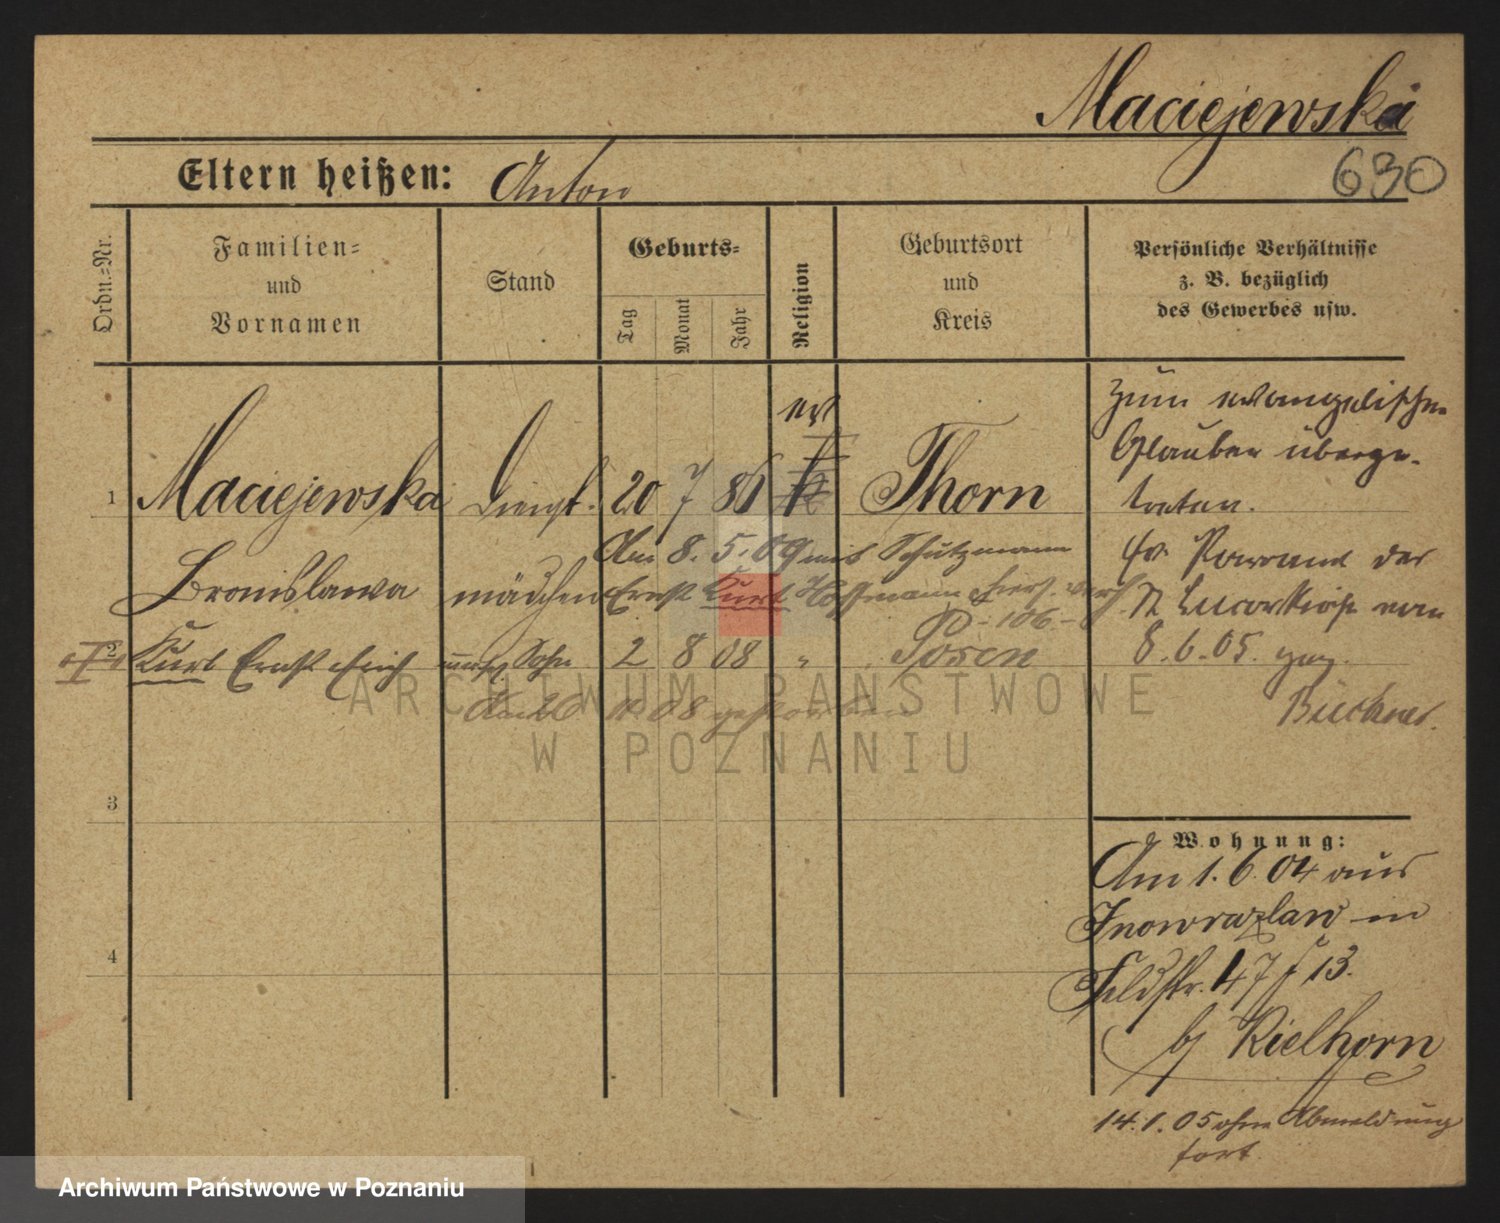 Maciejewska
630
Eltern heißen: Anton
Ordn.-Nr.
Familien-
und
Vornamen
Stand
Geburts-
Tag
Monat
Jahr
Religion
Geburtsort
und
Kreis
Persönliche Verhältnisse
z. B. bezüglich
des Gewerbes usw.
ev
1 Maciejewska Dienst- 20 7 86 Thorn
Am 8. 5. 09 mit Schutzmann
Bronislawa mädchen Ernst Kurt Hoffmann hier
P - 106 -
2 Kurt Ernst Erich Sohn 2 8 08 " Posen
10 08 gestorben
3
4
Zum evangelischen
Glauben überge-
treten.
der
St Lucaskirche vom
8. 6. 05.
Büchner.
Wohnung:
Am 1. 6. 04 aus
Inowrazlaw in
Feldstr. 47 f 13.
bj Kielhorn
14. 1. 05 ohne Abmeldung
fort.
ARCHIWUM PAŃSTWOWE
W POZNANIU
Archiwum Państwowe w Poznaniu